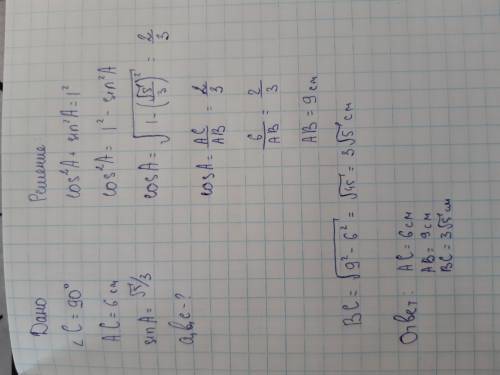 Дано
∠C = 90°
AC = 6 см
sinA = √5/3
a, b, c - ?
Решение
cos²A + sin²A = 1²
cos²A = 1² - sin²A
cosA = √(1 - (√5/3)²) = 2/3
cosA = AC/AB = 2/3
6/AB = 2/3
AB = 9 см
BC = √(9² - 6²) = √45 = 3√5 см
Ответ: AC = 6 см
AB = 9 см
BC = 3√5 см